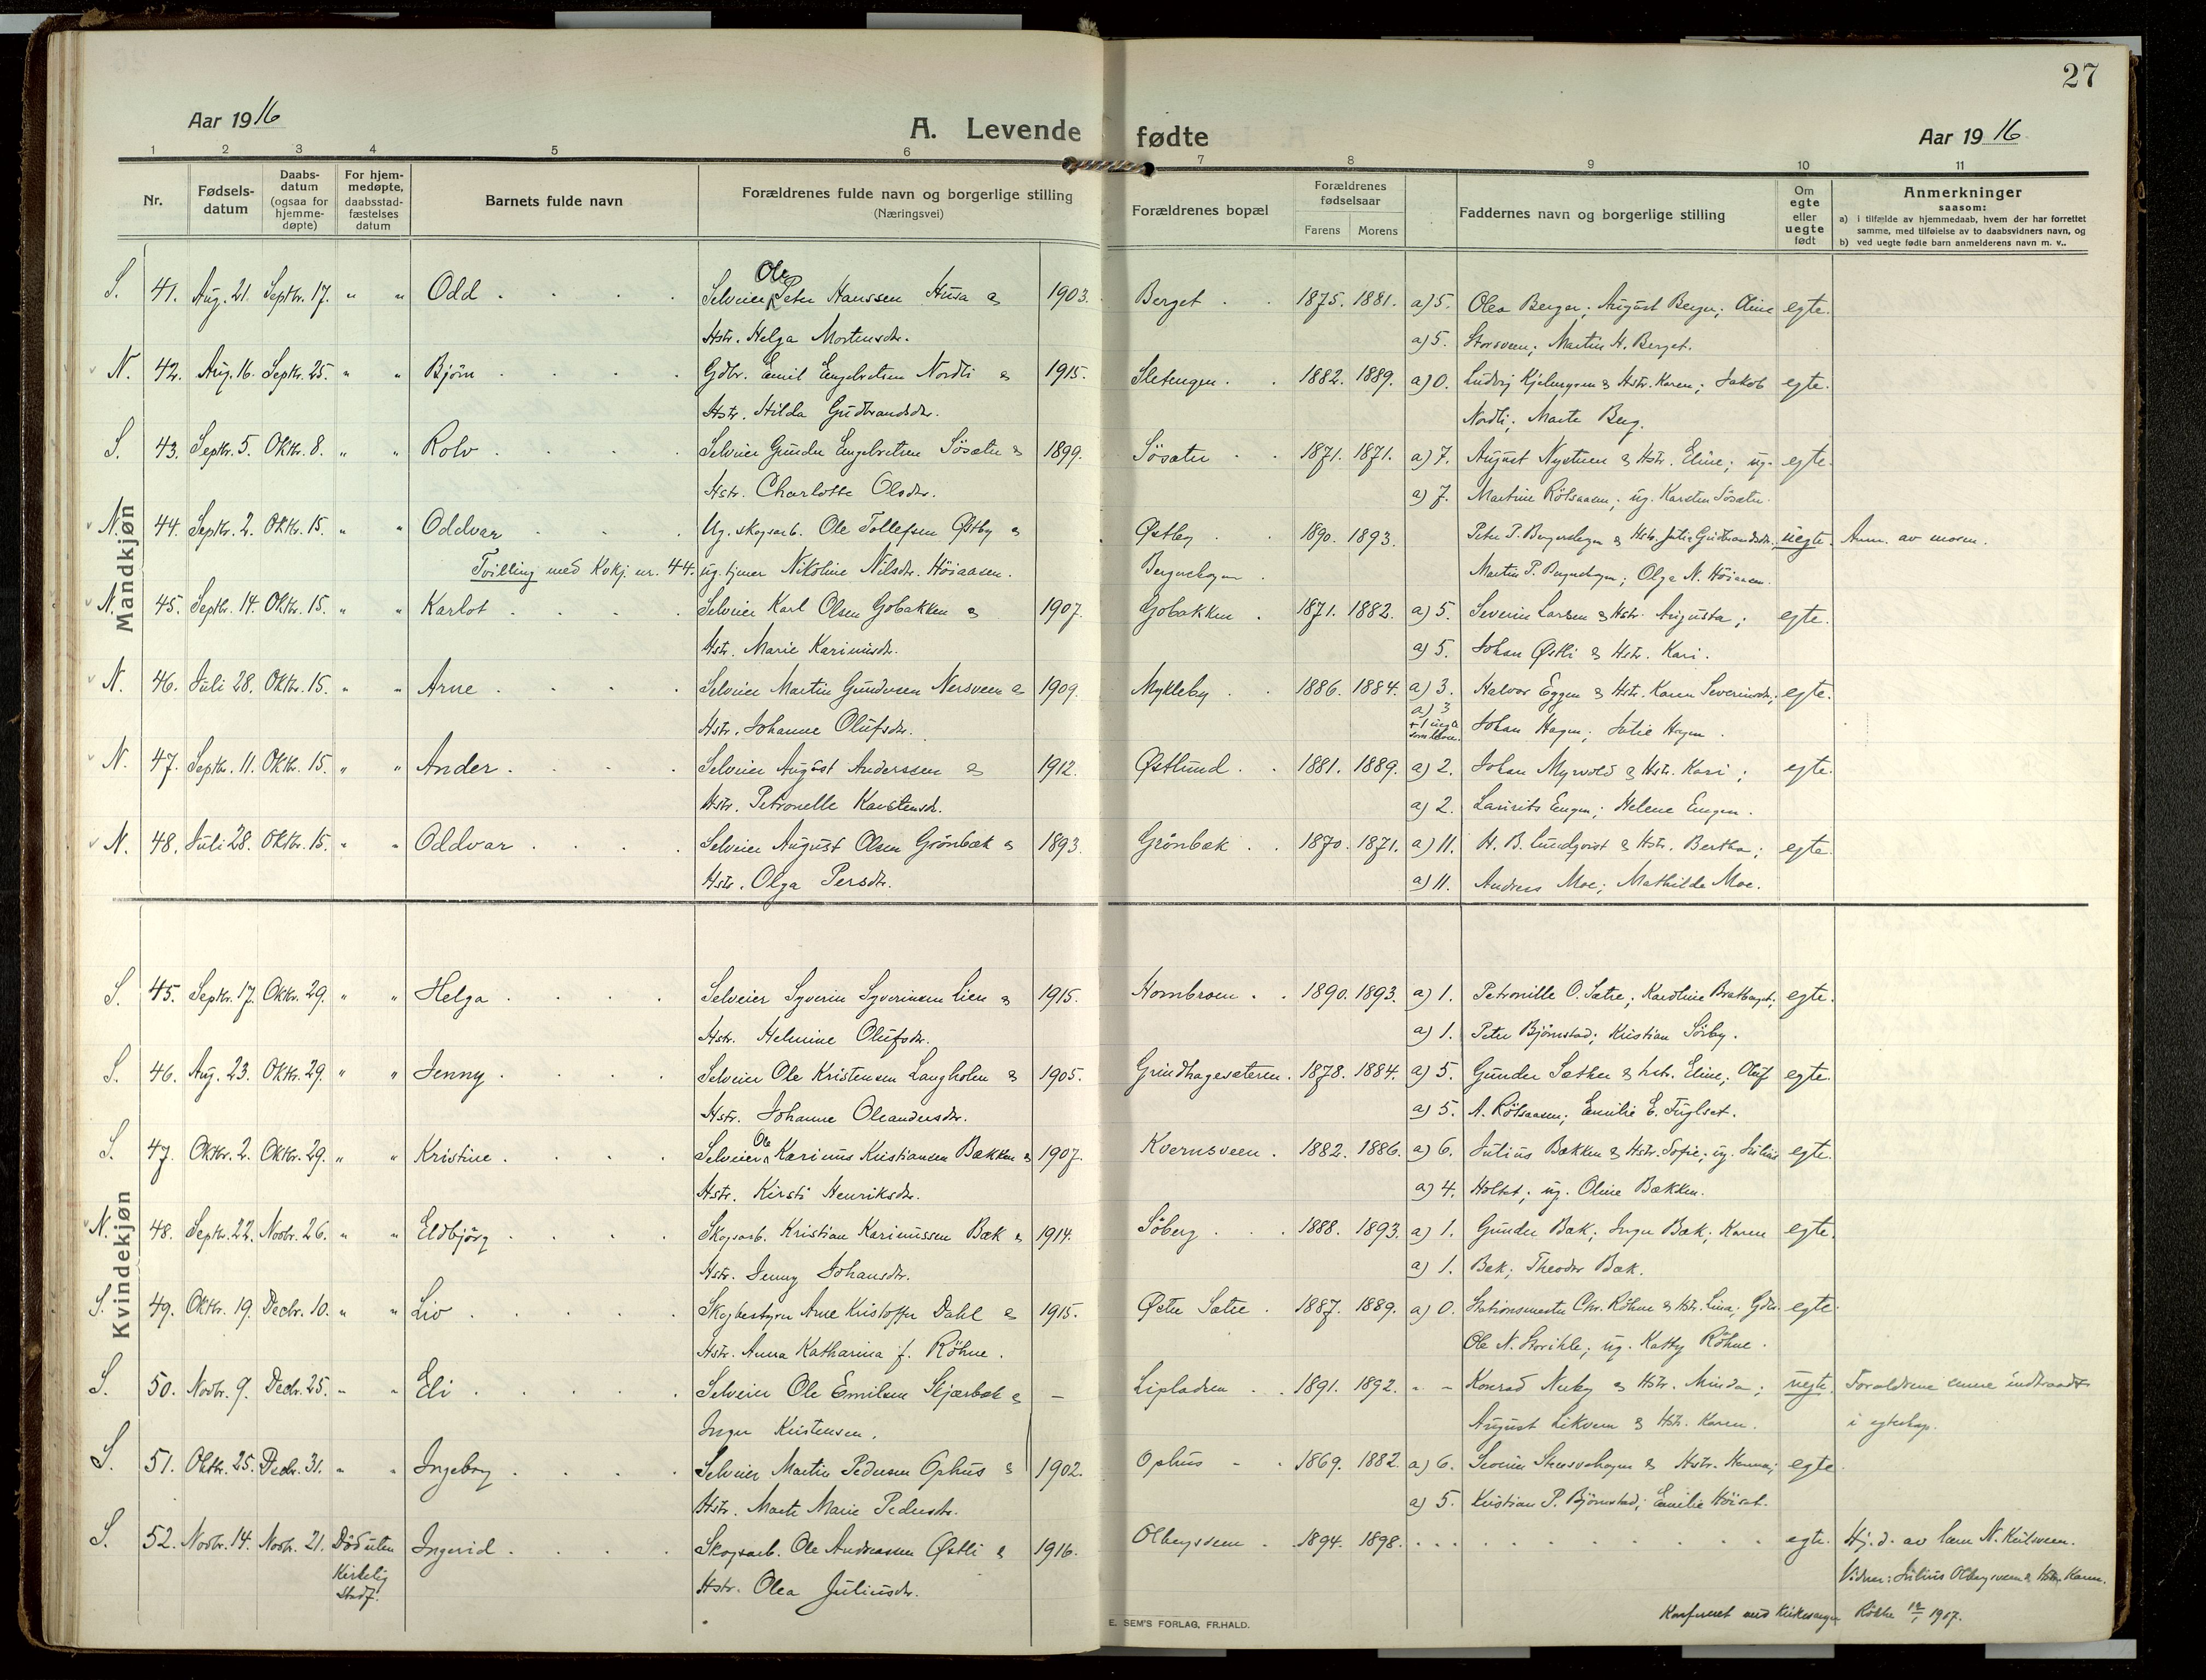 27
Aar 1916
A. Levende fødte
Aar 1916
1 2 3 4 5 6 7 8 9 10 11
Nr.
Fødsels-datum
Daabs-datum (ogsaa for hjemme-døpte)
For hjem-medøpte, daabsstad-fæstelses datum
Barnets fulde navn
Forældrenes fulde navn og borgerlige stilling
(Næringsvei)
Forældrenes bopæl
Forældrenes fødselsaar
Farens Morens
Faddernes navn og borgerlige stilling
Om egte eller uegte født
Anmerkninger
saasom:
a) i tilfælde av hjemmedaab, hvem der har forrettet samme, med tilføielse av to daabsvidners navn, og
b) ved uegte fødte barn anmelderens navn m. v..
Mandkjøn
S. 41. Aug. 21. Septbr. 17. " " Odd . . . . Selveier Ole Peter Hanssen Husa & 1903. Berget . . 1875. 1881. a) 5. Olea Berger; August Berger; Oline egte.
Hstr. Helga Mortensdtr. a) 5. Storsveen; Martin H. Berget.
N. 42. Aug. 16. Septbr. 25. " " Bjørn . . . . Gdbr. Emil Engebretsen Nordli & 1915. Sletengen . . 1882. 1889. a) 0. Ludvig & Hstr. Karen; Jakob egte.
Hstr. Hilda Gudbrandsdtr. Nordli; Marte Berg.
S. 43. Septbr. 5. Oktbr. 8. " " Rolv . . . . Selveier Gunder Engebretsen Søsæter & 1899. Søsæter . . 1871. 1871. a) 7. August Nystuen & Hstr. Eline; ug. egte.
Hstr. Charlotte Olsdtr. a) 7. Martine Rötsaasen; ug. Karsten Søsæter.
N. 44. Septbr. 2. Oktbr. 15. " " Oddvar . . . Ug. skogsarb. Ole Tollefsen Østby & Østby . . 1890. 1893. Peter P. Bergershagen & Hstr. Julie Gudbrandsdtr. uegte. Anm. av moren.
Tvilling med Kvkj. nr. 44. ug. tjener Nikoline Nilsdtr. Höiaasen. Bergershagen . Martin P. Bergershagen; Olga N. Höiaasen.
N. 45. Septbr. 14. Oktbr. 15. " " Karlot . . . . Selveier Karl Olsen Gobakken & 1907. Gobakken . 1871. 1882. a) 5. Severin Larsen & Hstr. Augusta; egte.
Hstr. Marie Karinusdtr. a) 5. Johan Østli & Hstr. Kari.
N. 46. Juli 28. Oktbr. 15. " " Arne . . . . Selveier Martin Gundersen Nersveen & 1909. Mykleby . . 1886. 1884. a) 3. Halvor Eggen & Hstr. Karen Severinsdtr; egte.
Hstr. Johanne Olufsdtr. a) 3 + 1 uegte Johan Hagen; Julie Hagen.
N. 47. Septbr. 11. Oktbr. 15. " " Ander . . . . Selveier August Anderssen & 1912. Østlund . . 1881. 1889. a) 2. Johan Myrvold & Hstr. Kari; egte.
Hstr. Petronelle Karstensd. a) 2. Laurits Engen; Helene Engen.
N. 48. Juli 28. Oktbr. 15. " " Oddvar . . . . Selveier August Olsen Grönbæk & 1893. Grönbæk . . 1870. 1871. a) 11. H. B. Lundqvist & Hstr. Bertha; egte.
Hstr. Olga Persdtr. a) 11. Andreas Moe; Mathilde Moe.
Kvindekjøn
S. 45. Septbr. 17. Oktbr. 29. " " Helga . . . . Selveier Syverin Syverinsen Lien & 1915. Hornbroen . . 1890. 1893. a) 1. Petronille O. Sætre; Karoline Bratberget; egte.
Hstr. Helmine Olufsdtr. a) 1. Peter Björnstad; Kristian Sörby.
S. 46. Aug. 23. Oktbr. 29. " " Jenny . . . . Selveier Ole Kristensen Langholen & 1905. Grindhagesæteren . 1878. 1884. a) 5. Gunder Sæther & hstr. Eline; Oluf egte.
Hstr. Johanne Oleandersdtr. a) 5. A. Rötsaasen; Emilie E. Fuglset.
S. 47. Oktbr. 2. Oktbr. 29. " " Kristine . . . . Selveier Ole Karinus Kristiansen Bækken & 1907. Kvernsveen . 1882. 1886. a) 6. Julius Bækken & Hstr. Sofie; ug. Julius egte.
Hstr. Kirsti Henriksdtr. a) 4. Holtet; ug. Oline Bækken.
N. 48. Septbr. 22. Novbr. 26. " " Eldbjörg . . . . Skogsarb. Kristian Karinussen Bæk & 1914. Söberg . . . 1888. 1893. a) 1. Gunder Bæk; Inger Bæk; Karen egte.
Hstr. Jenny Johansdtr. a) 1. Bæk; Theodor Bæk.
S. 49. Oktbr. 19. Decbr. 10. " " Liv . . . . Skogbestyrer Arne Kristoffer Dahl & 1915. Øster Sætre . 1887. 1889. a) 0. Stationsmester Chr. Röhne & Hstr. Lina; Gdbr. egte.
Hstr. Anna Katharina f. Röhne. Ole N. Storihle; ug. Katty Röhne.
S. 50. Novbr. 9. Decbr. 25. " " Eli . . . . Selveier Ole Emilsen Skjærbæk & – Lipladsen . . 1891. 1892. " – Konrad Neeby & Hstr. Minda; uegte. Forældrene senere indtraadt
Inger Kristensen. August Likveen & Hstr. Karen. i egteskap.
S. 51. Oktbr. 25. Decbr. 31. " " Ingeborg . . . . Selveier Martin Pedersen Ophus & 1902. Ophus . . 1869. 1882. a) 6. Severin & Hstr. Hanna; egte.
Hstr. Marte Marie Pedersdtr. a) 5. Kristian P. Björnstad; Emilie Höiset.
S. 52. Novbr. 14. Novbr. 21. Död uten Ingerid . . . . Skogsarb. Ole Andreassen Østli & 1916. Olbergsveen . 1894. 1898. . . . . . . . . egte. Hj. d. av lærer N. Kvilsveen.
Kirkelig Stadf. Hstr. Olea Juliusdtr. Vidner: Julius Olbergsveen & Hstr. Karen.
Konfereret med Kirkesanger Röhne 12/1 1917.
E. SEM'S FORLAG, FR.HALD.